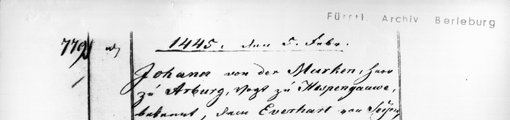 Fürstl. Archiv Berleburg
779
1445. den 5. Febr.
Johann von der Marken, herr
zu Arburg, Vogt zu Haspengauwe,
bekennt, dem Everhart von